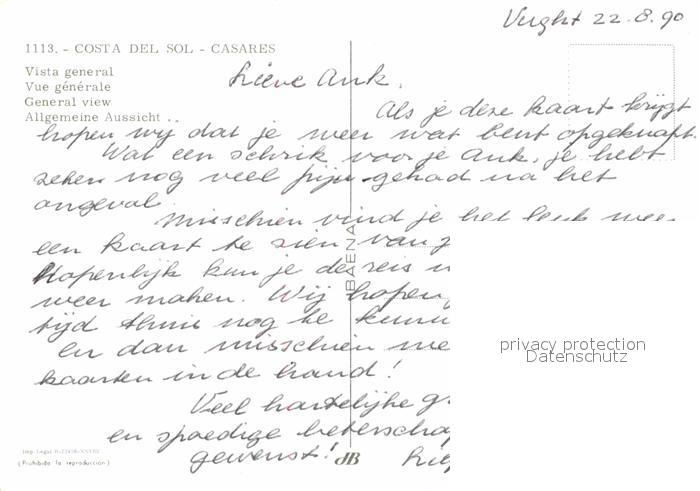 Vught 22.8.90
1113. - COSTA DEL SOL - CASARES
Vista general
Vue générale
General view
Allgemeine Aussicht
Lieve Ank.
Als je deze kaart krijgt
hopen wij dat je weer wat bent opgeknapt.
Wat een schrik voor je Ank. je hebt
zeker nog veel pijn gehad na het
ongeval
Misschien vind je het leuk weer
een kaart te zien van
Hopenlijk kun je de reis
weer maken. Wij hopen
tijd thuis nog te
en dan misschien
kaarten in de hand!
Veel hartelijke
en spoedige beterschap
gewenst!
BAENA
JB
(Prohibida la reproducción)
privacy protection
Datenschutz